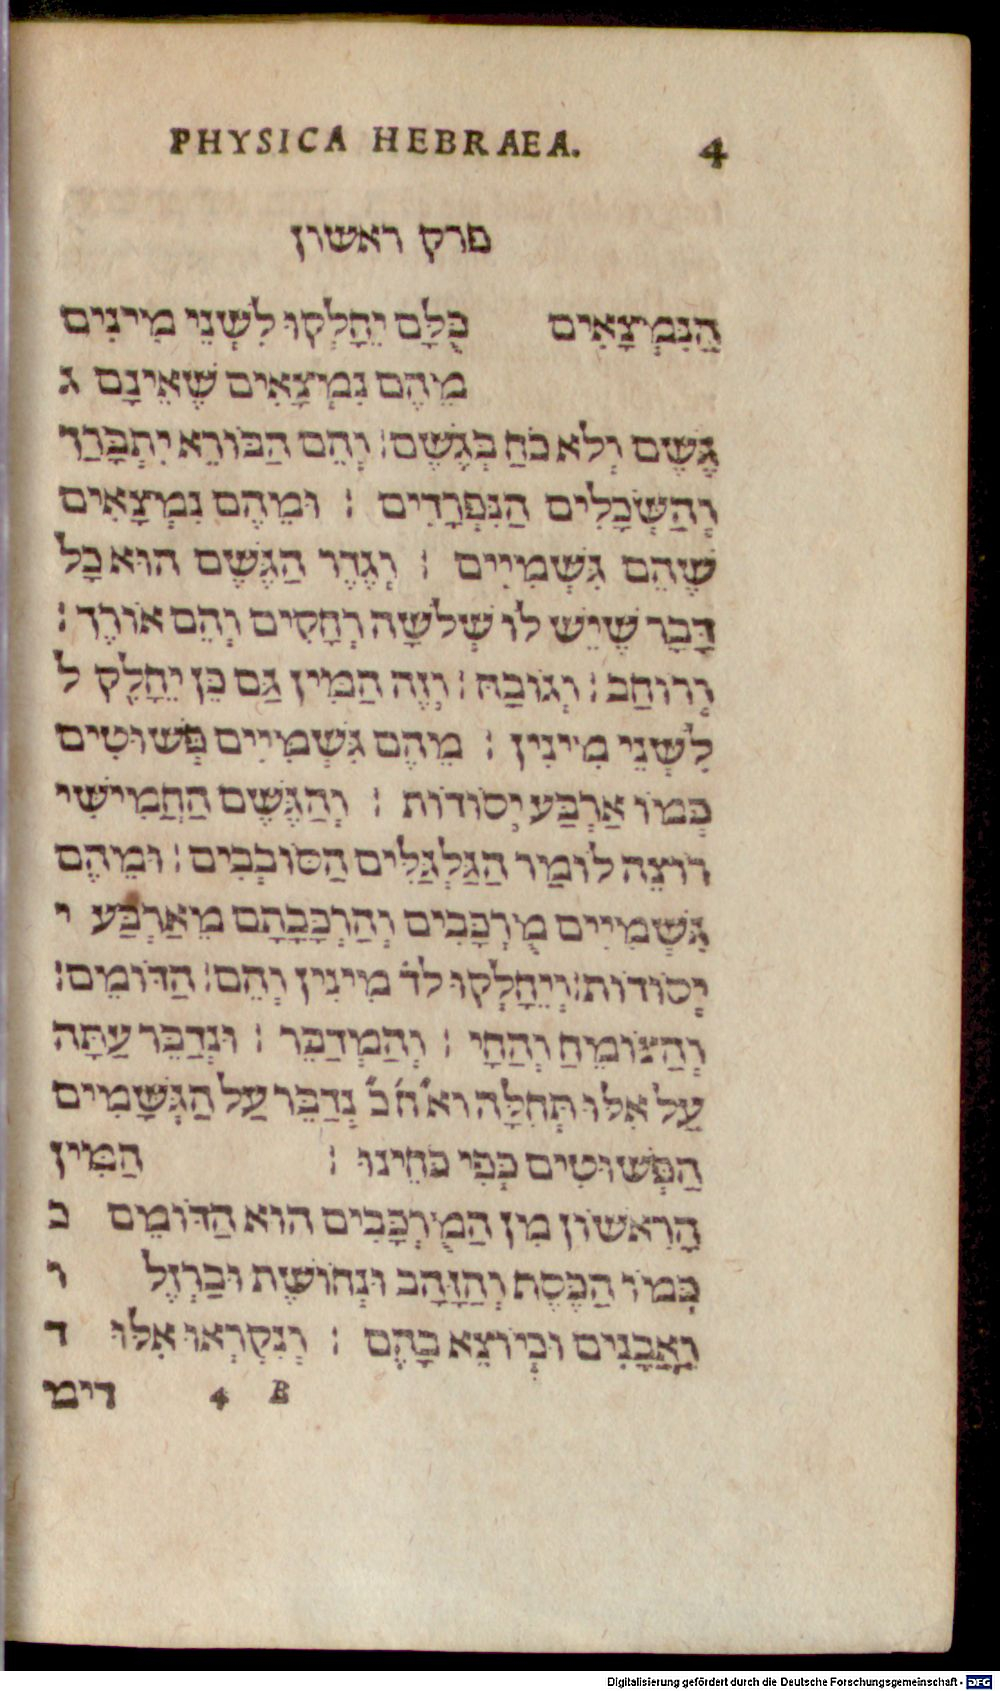 PHYSICA HEBRAEA. 4
פרק ראשון
הַנִּמְצָאִים כֻּלָּם יֵחָלְקוּ לִשְׁנֵי מִינִים
מֵהֶם נִמְצָאִים שֶׁאֵינָם ג
גֶּשֶׁם וְלֹא כֹחַ בְּגֶשֶׁם: וְהֵם הַבּוֹרֵא יִתְבָּרַךְ
וְהַשְּׂכָלִים הַנִּפְרָדִים : וּמֵהֶם נִמְצָאִים
שֶׁהֵם גִּשְׁמִיִים : וְגֶדֶר הַגֶּשֶׁם הוּא כָּל
דָּבָר שֶׁיֵּשׁ לוֹ שְׁלֹשָׁה רְחָקִים וְהֵם אוֹרֶךְ:
וְרוֹחַב: וְגוֹבַהּ: וְזֶה הַמִּין גַּם כֵּן יֵחָלֵק ל
לִשְׁנֵי מִינִין : מֵהֶם גִּשְׁמִיִים פְּשׁוּטִים
כְּמוֹ אַרְבַּע יְסוֹדוֹת : וְהַגֶּשֶׁם הַחֲמִישִׁי
רוֹצֶה לוֹמַר הַגַּלְגַּלִּים הַסּוֹבְבִים: וּמֵהֶם
גִּשְׁמִיִים מֻרְכָּבִים וְהַרְכָּבָתָם מֵאַרְבַּע י
יְסוֹדוֹת: וְיֵחָלְקוּ לד֗ מִינִין וְהֵם: הַדּוֹמֵם:
וְהַצּוֹמֵחַ וְהַחָי : וְהַמְדַבֵּר : וּנְדַבֵּר עַתָּה
עַל אִלּוּ תְּחִלָּה וא֗ח֗כ֗ נְדַבֵּר עַל הַגְּשָׁמִים
הַפְּשׁוּטִים כְּפִי כֹּחֵינוּ : הַמִּין
הָרִאשׁוֹן מִן הַמֻּרְכָּבִים הוּא הַדּוֹמֵם כ
כְּמוֹ הַכֶּסֶף וְהַזָּהָב וּנְחוֹשֶׁת וּבַרְזֶל ו
וַאֲבָנִים וּכְיוֹצֵא בָּהֶם : וְנִקְרְאוּ אִלּוּ ד
B 4 דימ
Digitalisierung gefördert durch die Deutsche Forschungsgemeinschaft - DFG